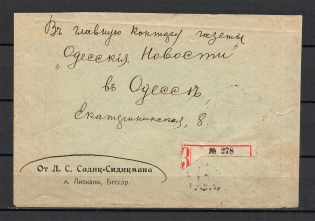 Въ главную контору газеты
"Одесскія Новости"
въ Одессѣ,
Екатерининская, 8.
З № 278
От Л. С. Садиц-Сидицмана
м. Липканы, Бессар.